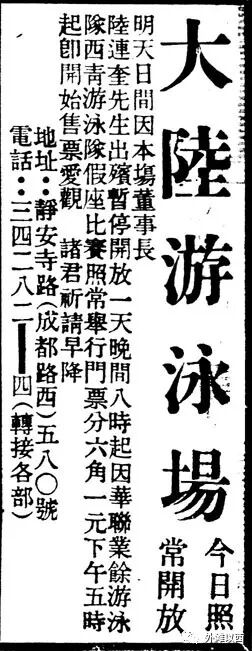 大陸游泳場
今日照
常開放
明天日間因本場董事長
陸連奎先生出殯暫停開放一天晚間八時起因華聯業餘游泳
隊西青游泳隊假座比賽照常舉行門票分六角一元下午五時
起卽開始售票愛觀 諸君祈請早降
地址：靜安寺路(成都路西)五八〇號
電話：三四二八二——四(轉接各部)
外滩以西